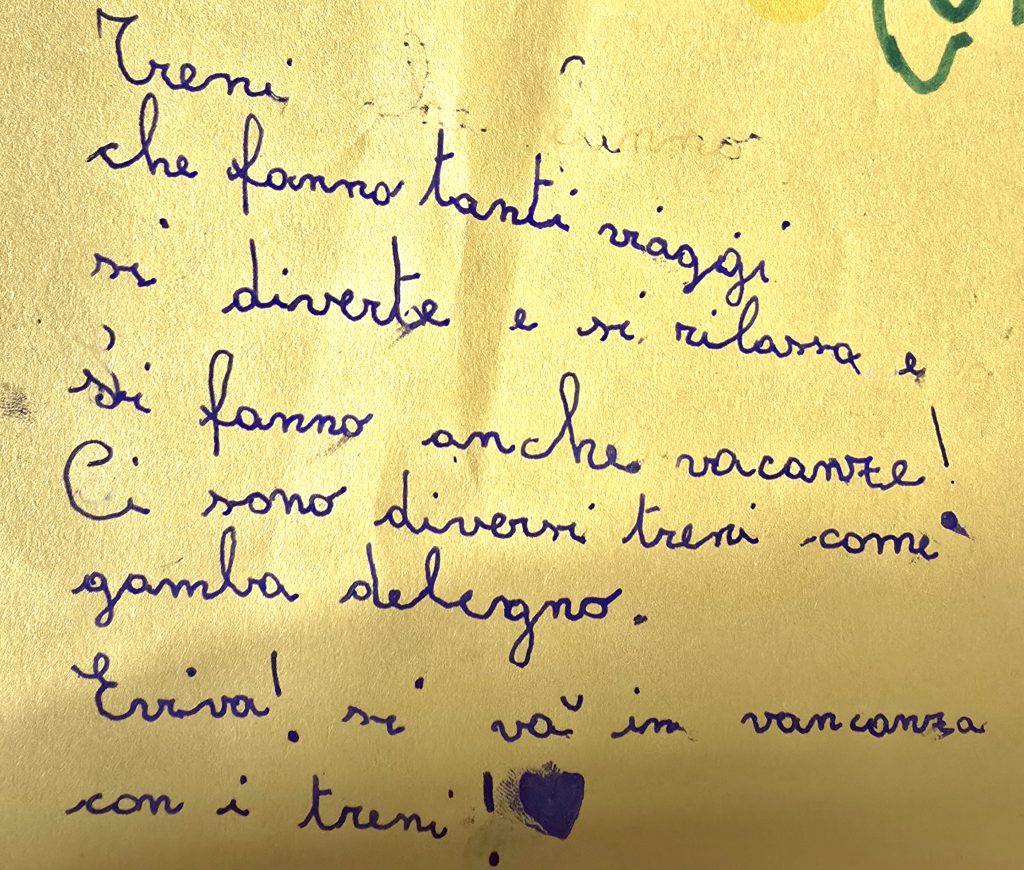 Treni
che fanno tanti viaggi
si diverte e si rilassa e
si fanno anche vacanze!
Ci sono diversi treni come
gamba delegno.
Evviva! si vă in vancanza
con i treni!